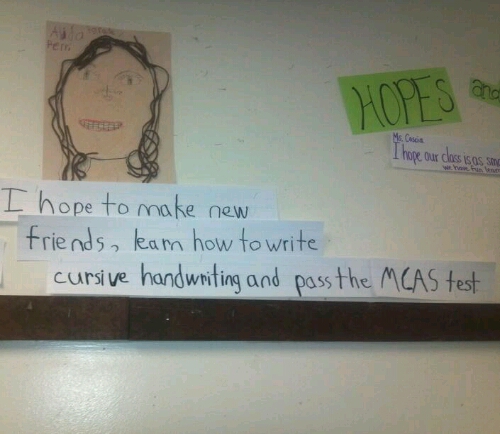 HOPES
and
Ms. Cascia
I hope our class is as
we have fun
I hope to make new
friends, learn how to write
cursive handwriting and pass the MCAS test